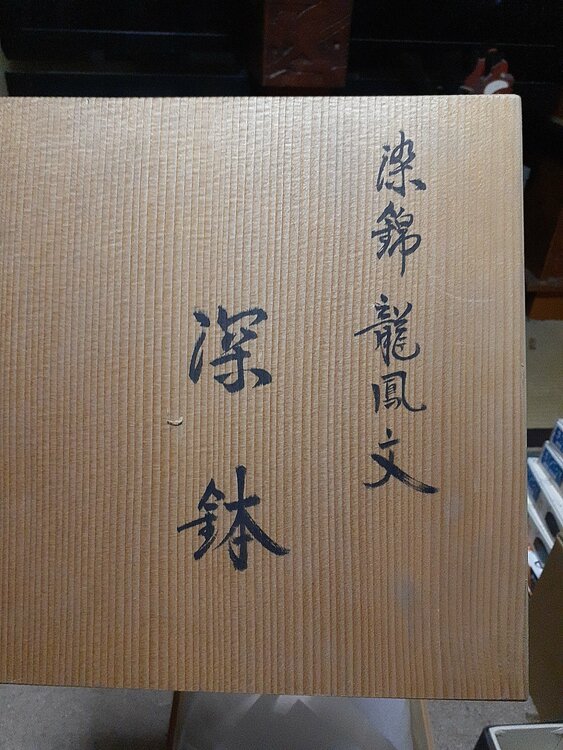 染錦 龍鳳文
深鉢